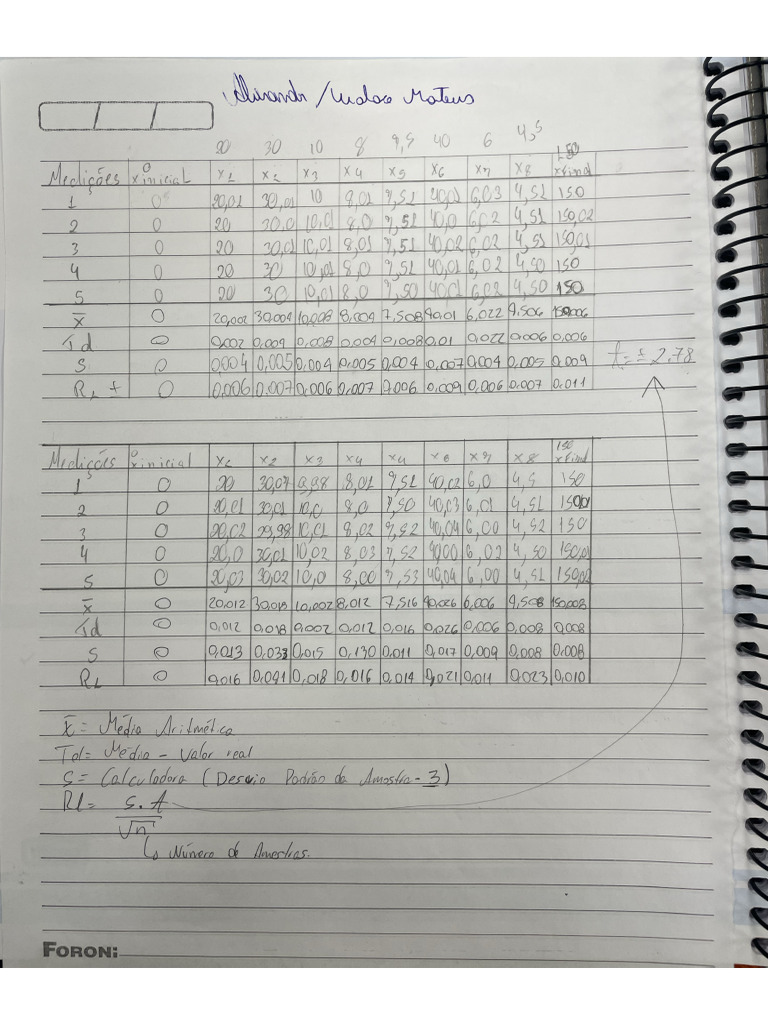 Mateus
20 30 10 8 7,5 40 6 4,5 150
Medições x inicial x1 x2 x3 x4 x5 x6 x7 x8 xfinal
1 0 20,01 30,01 10 8,01 7,51 40,01 6,03 4,51 150
2 0 20 30,0 10,01 8,0 7,51 40,0 6,02 4,51 150,02
3 0 20 30,01 10,01 8,01 7,51 40,02 6,02 4,51 150,01
4 0 20 30 10,01 8,0 7,51 40,01 6,02 4,50 150
5 0 20 30 10,01 8,0 7,50 40,01 6,02 4,50 150
x̄ 0 20,002 30,004 10,008 8,004 7,508 40,01 6,022 4,506 150,006
Td 0 0,002 0,004 0,008 0,004 0,008 0,01 0,022 0,006 0,006
S 0 0,004 0,005 0,004 0,005 0,004 0,007 0,004 0,005 0,009 t = ± 2.78
RL ± 0 0,006 0,007 0,006 0,007 0,006 0,009 0,006 0,007 0,011
150
Medições x inicial x1 x2 x3 x4 x4 x6 x7 x8 xfind
1 0 20 30,07 9,98 8,01 7,51 40,02 6,0 4,5 150
2 0 20,01 30,01 10,0 8,0 7,50 40,03 6,01 4,51 150,01
3 0 20,02 29,98 10,01 8,02 7,52 40,04 6,00 4,52 150
4 0 20,0 30,01 10,02 8,03 7,52 40,00 6,02 4,50 150,01
5 0 20,03 30,02 10,0 8,00 7,53 40,04 6,00 4,51 150,02
x̄ 0 20,012 30,018 10,002 8,012 7,516 40,026 6,006 4,508 150,008
Td 0 0,012 0,018 0,002 0,012 0,016 0,026 0,006 0,008 0,008
S 0 0,013 0,033 0,015 0,130 0,011 0,017 0,009 0,008 0,008
RL 0 0,016 0,041 0,018 0,016 0,014 0,021 0,011 0,023 0,010
x̄ = Média Aritmética
Td = Média - Valor real
S = Calculadora (Desvio Padrão da Amostra - 3)
Rl = S . A
√n
↳ Número de Amostras.
FORONI